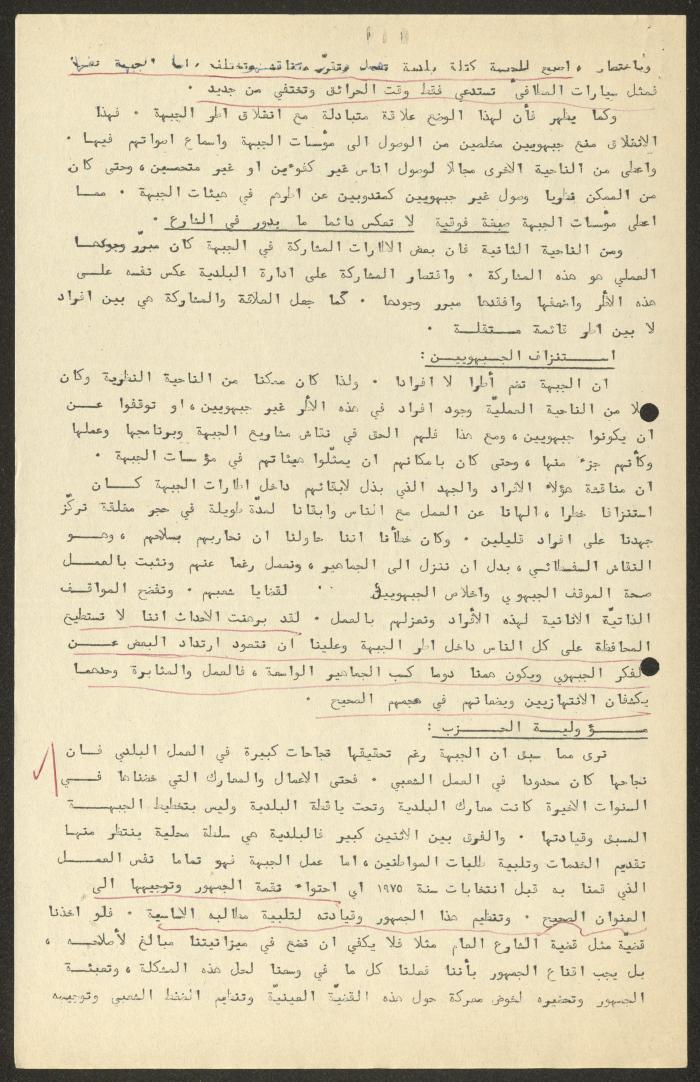 وباختصار ، اصبح للجبهة كتلة بلدية تعمل وتقرّر وتختلف ، اما الجبهة نفسها
فمثل سيارات المطافي* تستدعى فقط وقت الحرائق وتختفي من جديد .
وكما يظهر فأن لهذا الوضع علاقة متبادلة مع انغلاق اطر الجبهة . فهذا
الانغلاق منع جبهويين مخلصين من الوصول الى مؤسسات الجبهة واسماع اصواتهم فيها .
واعطى من الناحية الاخرى مجالا لوصول اناس غير كفوءين او غير متحمسين ، وحتى كان
من الممكن نظريا وصول غير جبهويين كمندوبين عن اطرهم في هيئات الجبهة . مما
اعطى مؤسسات الجبهة صيغة فوقية لا تعكس دائما ما يدور في الشارع .
ومن الناحية الثانية فان بعض الاطارات المشاركة في الجبهة كان مبرّر وجودها
العملي هو هذه المشاركة . واقتصار المشاركة على ادارة البلدية عكس نفسه على
هذه الاطر واضعفها وافقدها مبرر وجودها . كما جعل العلاقة والمشاركة هي بين افراد
لا بين اطر قائمة مستقلة .
استنزاف الجبهويين :
ان الجبهة تضم أطرا لا افرادا . ولذا كان ممكنا من الناحية النظرية وكان
لا من الناحية العمليّة وجود افراد في هذه الاطر غير جبهويين ، او توقفوا عن
ان يكونوا جبهويين ، ومع هذا فلهم الحق في نقاش مشاريع الجبهة وبرنامجها وعملها
وكأنهم جزء منها ، وحتى كان بامكانهم ان يمثّلوا هيئاتهم في مؤسسات الجبهة .
ان مناقشة هؤلاء الافراد والجهد الذي بذل لابقائهم داخل اطارات الجبهة كان
استنزافا خطرا ، الهانا عن العمل مع الناس وابقانا لمدّة طويلة في حجر مغلقة تركّز
جهدنا على افراد قليلين . وكان خطأنا اننا حاولنا ان نحاربهم بسلاحهم ، وهو
النقاش السفسطائي ، بدل ان ننزل الى الجماهير ، ونعمل رغما عنهم ونثبت بالعمل
صحة الموقف الجبهوي واخلاص الجبهويين لقضايا شعبهم . ونفضح المواقف
الذاتيّة الانانية لهذه الأفراد ونعزلهم بالعمل . لقد برهنت الاحداث اننا لا نستطيع
المحافظة على كل الناس داخل اطر الجبهة وعلينا ان نتعود ارتداد البعض عن
الفكر الجبهوي ويكون همنا دوما كسب الجماهير الواسعة ، فالعمل والمثابرة وحدهما
يكشفان الانتهازيين ويضعانهم في حجمهم الصحيح .
مسؤولية الحزب :
نرى مما سبق ان الجبهة رغم تحقيقها نجاحات كبيرة في العمل البلدي فان
نجاحها كان محدودا في العمل الشعبي . فحتى الاعمال والمعارك التي خضناها في
السنوات الاخيرة كانت معارك البلدية وتحت يافطة البلدية وليس بتخطيط الجبهة
المسبق وقيادتها . والفرق بين الاثنين كبير فالبلدية هي سلطة محلية ينتظر منها
تقديم الخدمات وتلبية طلبات المواطنين ، اما عمل الجبهة فهو تماما نفس العمل
الذي قمنا به قبل انتخابات سنة ١٩٧٥ اي احتواء نقمة الجمهور وتوجيهها الى
العنوان الصحيح . وتنظيم هذا الجمهور وقيادته لتلبية مطالبه الاساسية . فلو اخذنا
قضيّة مثل قضية الشارع العام مثلا فلا يكفي ان نضع في ميزانيتنا مبالغ لأصلاحه ،
بل يجب اقناع الجمهور بأننا فعلنا كل ما في وسعنا لحل هذه المشكلة ، وتعبئة
الجمهور وتحضيره لخوض معركة حول هذه القضيّة العينيّة وتنظيم الضغط الشعبي وتوجيهه